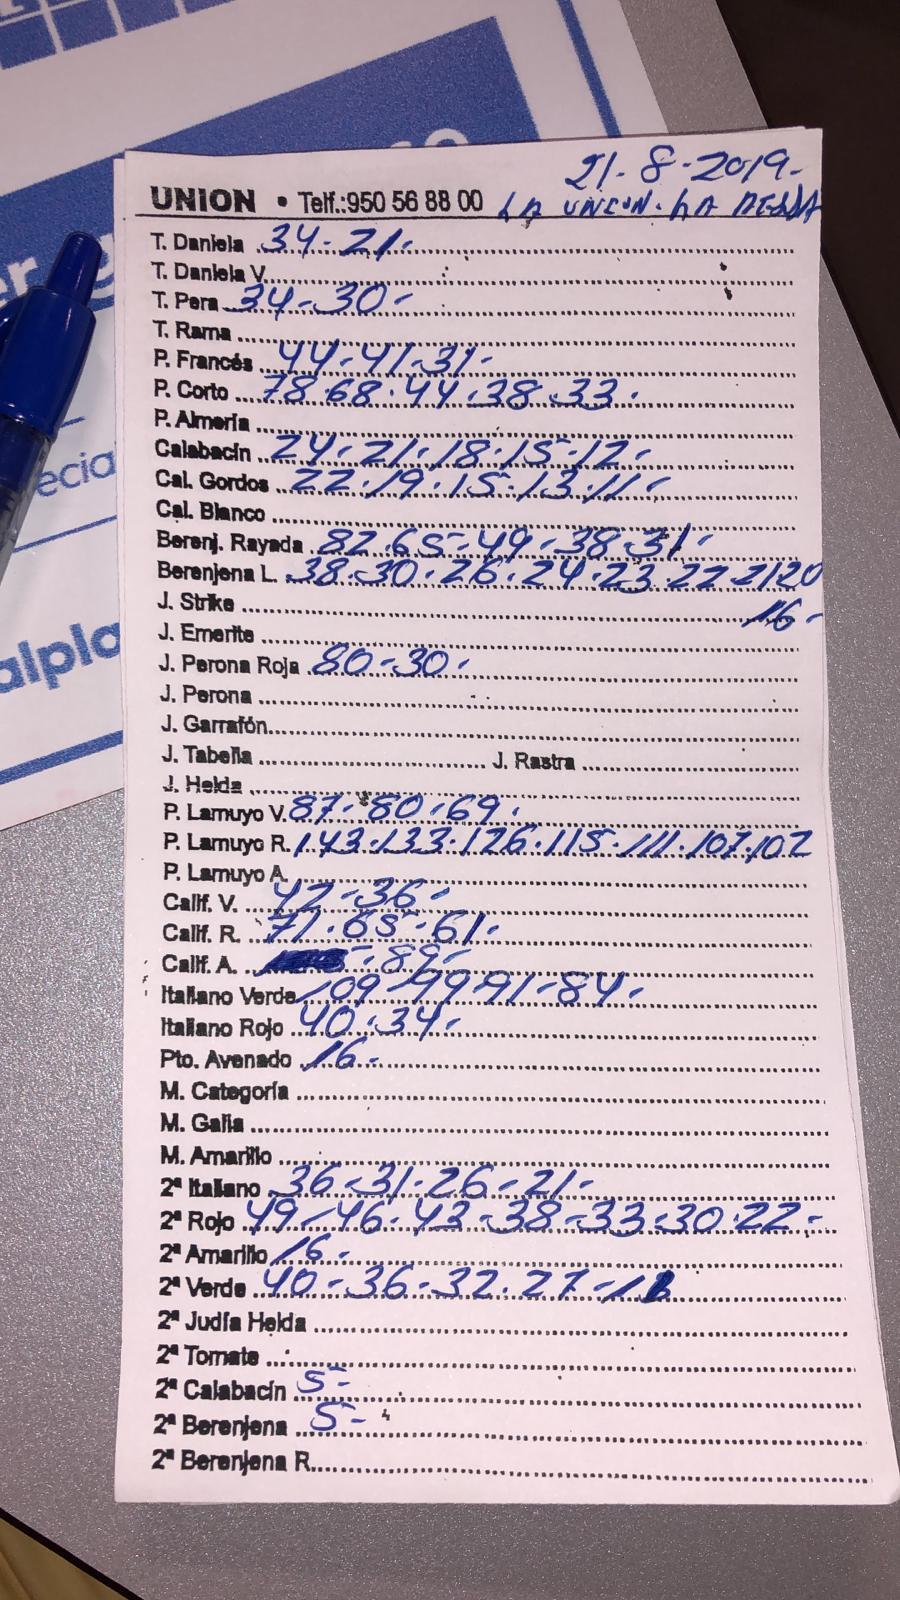 21-8-2019-
UNION • Telf.:950 56 88 00 LA UNION-LA
T. Daniela 34-21-
T. Daniela V.
T. Pera 34-30-
T. Rama
P. Francés 44-41-31-
P. Corto 78-68-44-38-33-
P. Almería
Calabacín 24-21-18-15-12-
Cal. Gordos 22-19-15-13-11-
Cal. Blanco
Berenj. Rayada 82-65-49-38-31-
Berenjena L. 38-30-26-24-23-22-21 20
16-
J. Strike
J. Emerite
J. Perona Roja 80-30-
J. Perona
J. Garrafón
J. Tabeña J. Rastra
J. Helda
P. Lamuyo V. 87-80-69-
P. Lamuyo R. 143-133-126-115-111-107-102
P. Lamuyo A.
Calif. V. 42-36-
Calif. R. 71-65-61-
Calif. A. -89-
Italiano Verde 109-99-91-84-
Italiano Rojo 40-34-
Pto. Avenado 16-
M. Categoría
M. Galia
M. Amarillo
2ª Italiano 36-31-26-21-
2ª Rojo 49-46-43-38-33-30-22-
2ª Amarillo 16-
2ª Verde 40-36-32-27-
2ª Judía Helda
2ª Tomate
2ª Calabacín 5-
2ª Berenjena 5-
2ª Berenjena R.
ecia
alpla